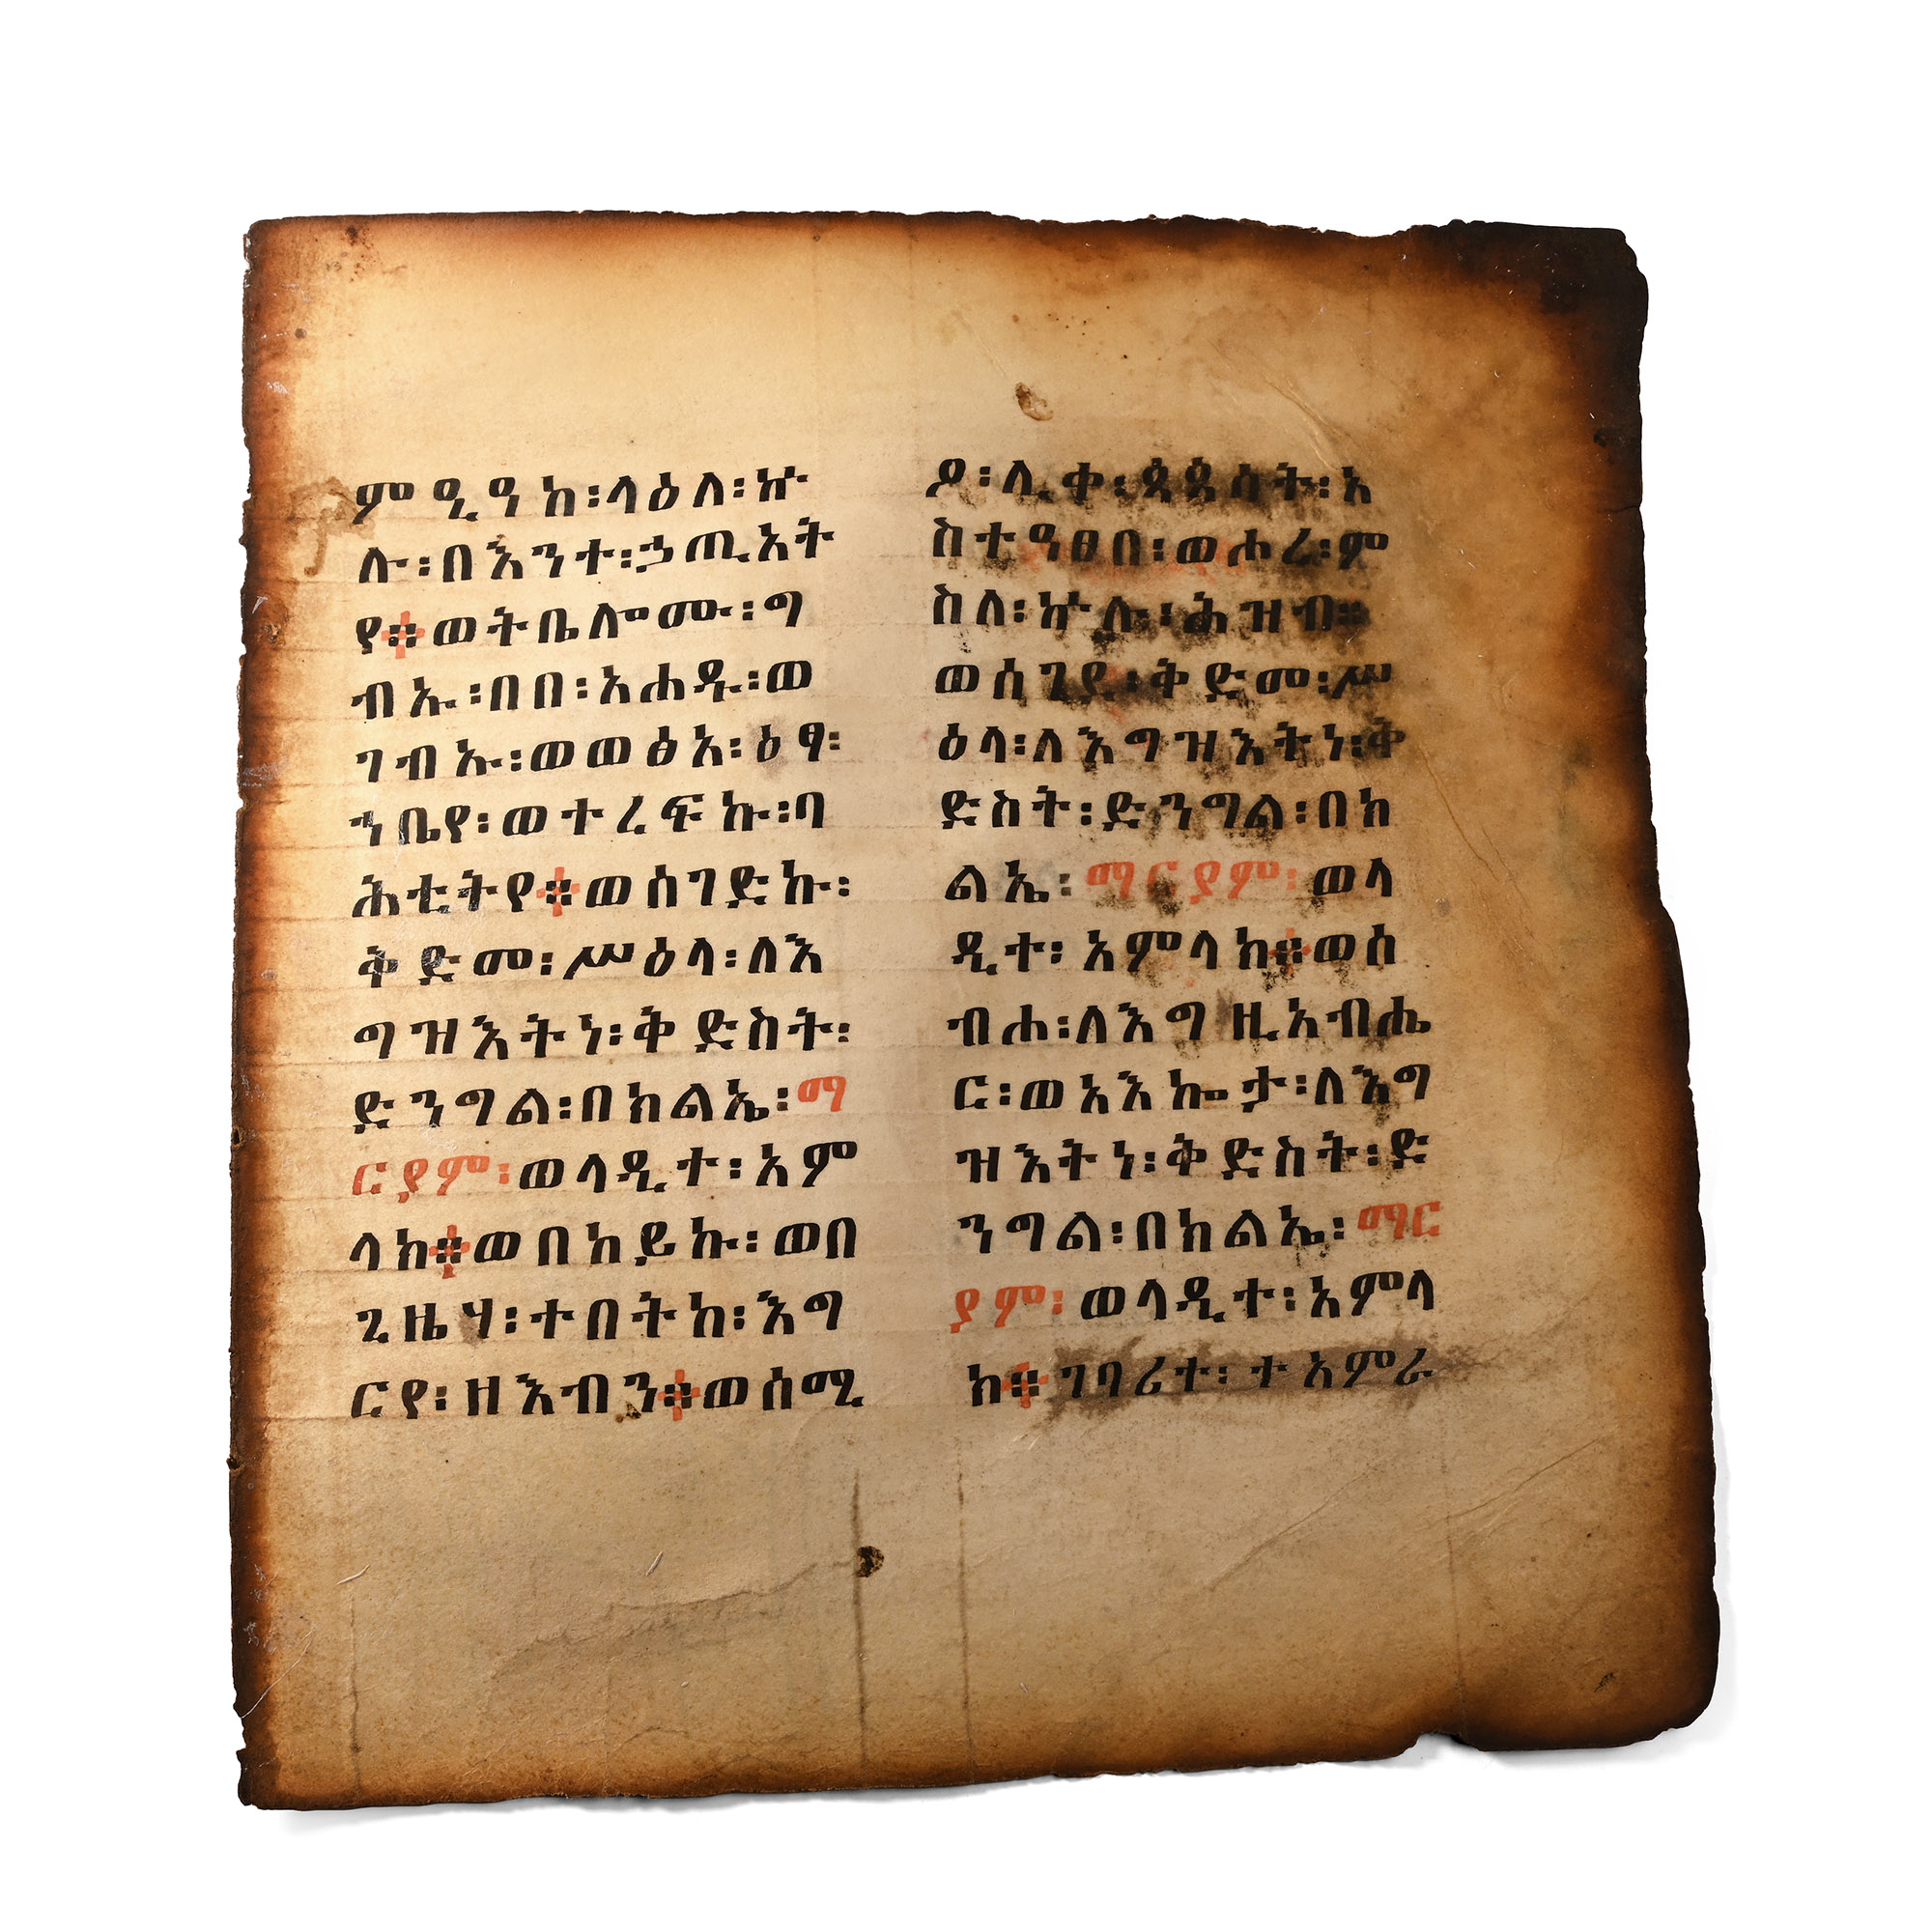 ምዒዓከ፡ላዕለ፡ኵ
ሉ፡በእንተ፡ኃጢአት
የ፨ወትቤሎሙ፡ግ
ብኡ፡በበ፡አሐዱ፡ወ
ገብኡ፡ወወፅአ፡ዕፃ፡
ኀቤየ፡ወተረፍኩ፡ባ
ሕቲትየ፨ወሰገድኩ፡
ቅድመ፡ሥዕላ፡ለእ
ግዝእትነ፡ቅድስት፡
ድንግል፡በክልኤ፡ማ
ርያም፡ወላዲተ፡አም
ላክ፨ወበከይኩ፡ወበ
ጊዜሃ፡ተበትከ፡እግ
ርየ፡ዘእብን፨ወሰሚ
ዖ፡ሊቀ፡ጳጳሳት፡አ
ስተዓፀበ፡ወሖረ፡ም
ስለ፡ኵሉ፡ሕዝብ፨
ወሰጊዶ፡ቅድመ፡ሥ
ዕላ፡ለእግዝእትነ፡ቅ
ድስት፡ድንግል፡በክ
ልኤ፡ማርያም፡ወላ
ዲተ፡አምላክ፨ወሰ
ብሐ፡ለእግዚአብሔ
ር፡ወአእኰታ፡ለእግ
ዝእትነ፡ቅድስት፡ድ
ንግል፡በክልኤ፡ማር
ያም፡ወላዲተ፡አምላ
ክ፨ገባሪተ፡ተአምራ